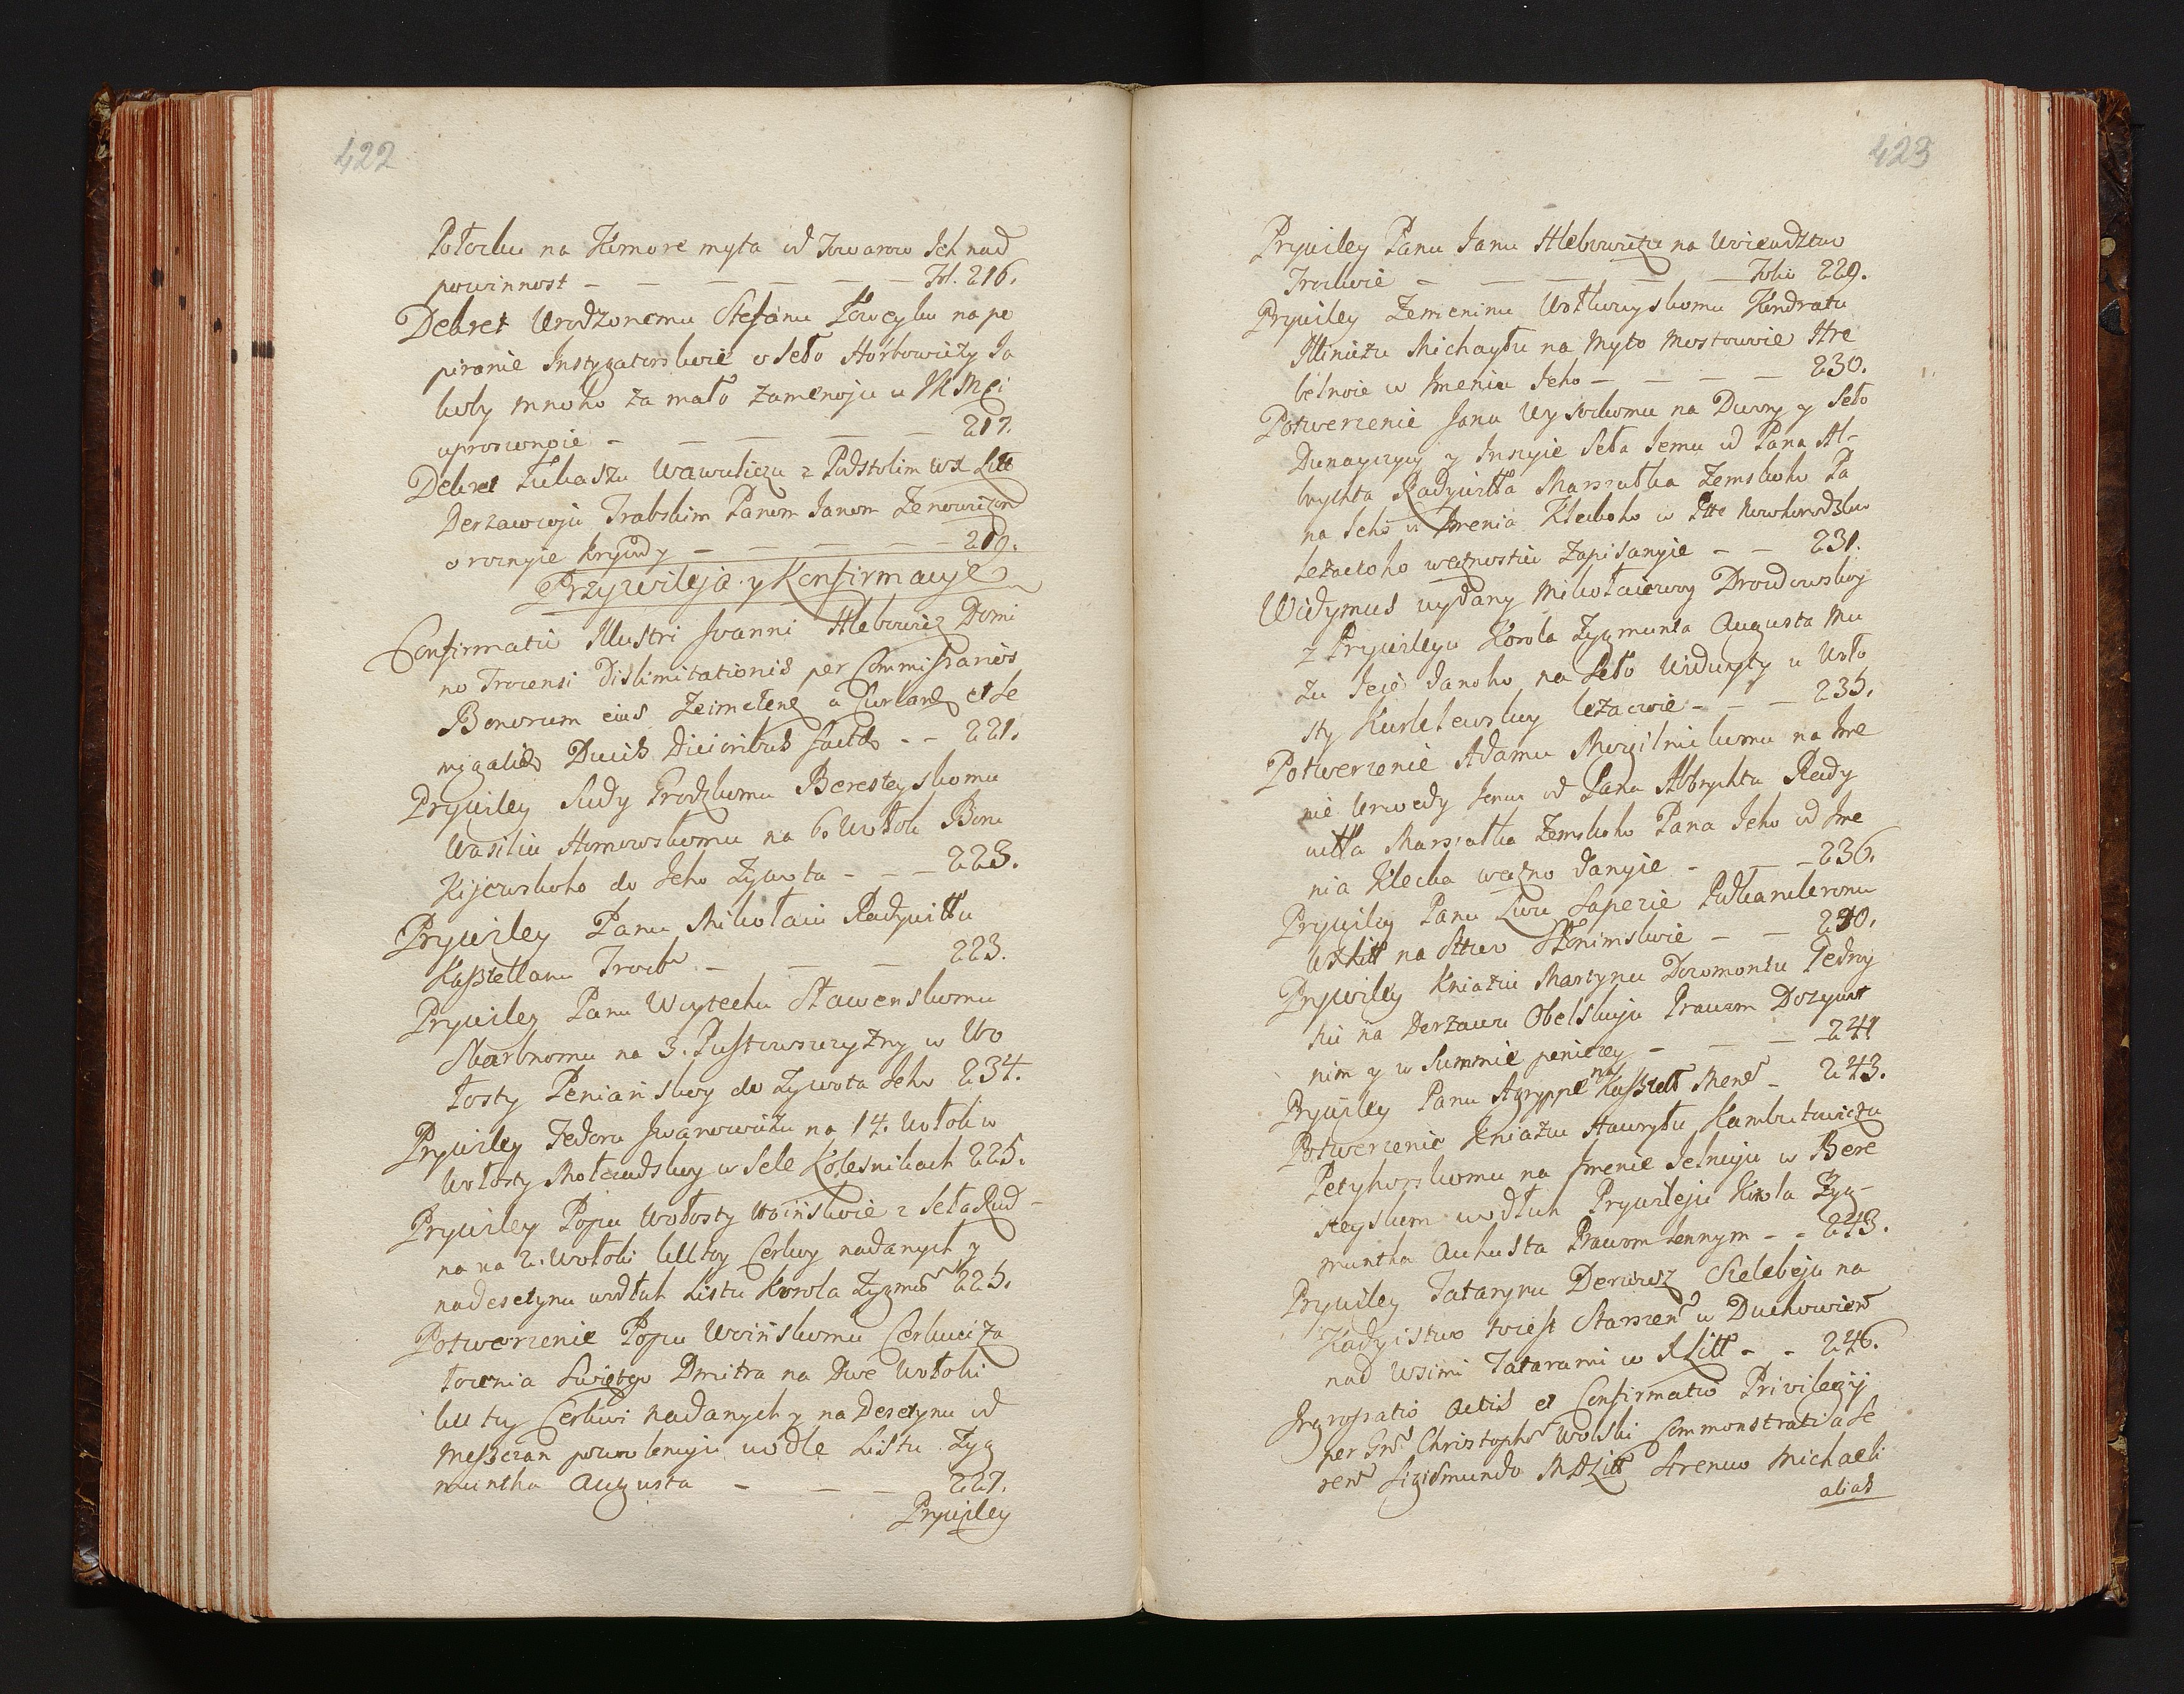 422
Połocku na Komore myta od Towarow Ich nad
powinnost - - - - - - Fol. 216.
Dekret Urodzonemu Stefanu Łowcyku na po
piranie Instygatorskoie o Seło Horbowiczy Ja
koby mnoho za mało zamenoju u JKMci
uproszonoie - - - - - 217.
Dekret Łukaszu Wawuliczu z Podstolim WX Litt
Derzawcoju Trabskim Panom Janom Zenowiczom
o roznyie krywdy - - - - - 219.
Przywileja y Konfirmacye
Confirmatio Illustri Joanni Hlebowicz Domi
no Trocensi Dislimitationis per Commissarios
Bonorum eius Zeimelene a Curland et Se
migaliæ Ducis Dicionibus factæ - - 221.
Prywiley Sudy Grodzkomu Beresteyskomu
Wasiliu Homowskomu na 6. Wołok Boru
Kijewskoho do Jeho Zywota - - - 223.
Prywiley Panu Mikołaiu Radywiłłu
Kasztellanu Trock - - - 223.
Prywiley Panu Woytechu Sławenskomu
Skarbnomu na 3. Pustowszczyzny w Wo
łosty Penianskoy do Zywota Jeho 234.
Prywiley Fedoru Iwanowiczu na 14. Wołok w
Wołosty Mołczadskoy w Sele Kolesnikach 225.
Prywiley Popu Wołosty Woinskoie z Seła Rud-
na na 2. Wołoki k toy Cerkwy nadanych y
na desetynu wodłuh Listu Korola Zygmu 225.
Potwerzenie Popu Woinskomu Cerkwi Za
łozenia Swiętego Dmitra na Dwe Wołoki
k toy Cerkwi nadanych y na Desetynu od
Meszczan powolenuju wodle Listu Zyg
muntha Augusta - - - 227.
Prywiley
423
Prywiley Panu Janu Hlebowiczu na Woiewodztwo
Trockoie - - - - - - Folio 229.
Prywiley Zemeninu Wołkowyskomu Kondratu
Illiniczu Michayłu na Myto Mostowoie Hre
belnoie w Imeniu Jeho - - - - 230.
Potwerzenie Janu Wysockomu na Dwory y Seło
Dunayczycy y Inszyie Seła Jemu od Pana Al-
brychta Radywiłła Marszałka Zemskoho Pa
na Jeho u Imenia Klecoho w Ptte Nowhorodsko
Lezaczoho wecznostiu zapisanyie - - 231.
Widymus wydany Mikołaiewoy Drozdowskoy
z Prywileyu Korola Zygmunta Augusta Mu
zu Jeie Danoho na Seło Widuyty u Woło
sty Kurklewskoy lezaczoie - - - 235.
Potwerzenie Adamu Mogilnickomu na Ime
nie Urwedy Jemu od Pana Albrychta Rady
wiłła Marszałka Zemskoho Pana Jeho od Ime
nia Klecka weczno Danyie - - - 236.
Prywiley Panu Lwu Sapezie Podkancleromu
WXLitt na Sttwo Słonimskoie - - 240.
Prywiley Kniaziu Martynu Dowmontu Pedny
ku na Derzawu Obelskuju Prawom Dozywot
nim y w Summie peniezey - - - 241
Prywiley Panu Agryppe na Kasztell Mens - 243.
Potwerzenie Kniaziu Hawryłu Kambułowiczu
Petyhorskomu na Imenie Jelnuju w Bere
steyskom wodłuh Prywileju Korola Zyg-
muntha Auhusta Prawom Lennym - - 243.
Prywiley Tatarynu Derwisz Czelebeju na
Kadyistwo toiest Starszen u Duchowien
nad wsimi Tatarami w X Litt - - 246.
Ingrossatio actis et Confirmatio Privilegij
per Gns Christoph Wolski Commonstrati a Se
ren Sigismundo MDLitt Strenuo Michaeli
alias